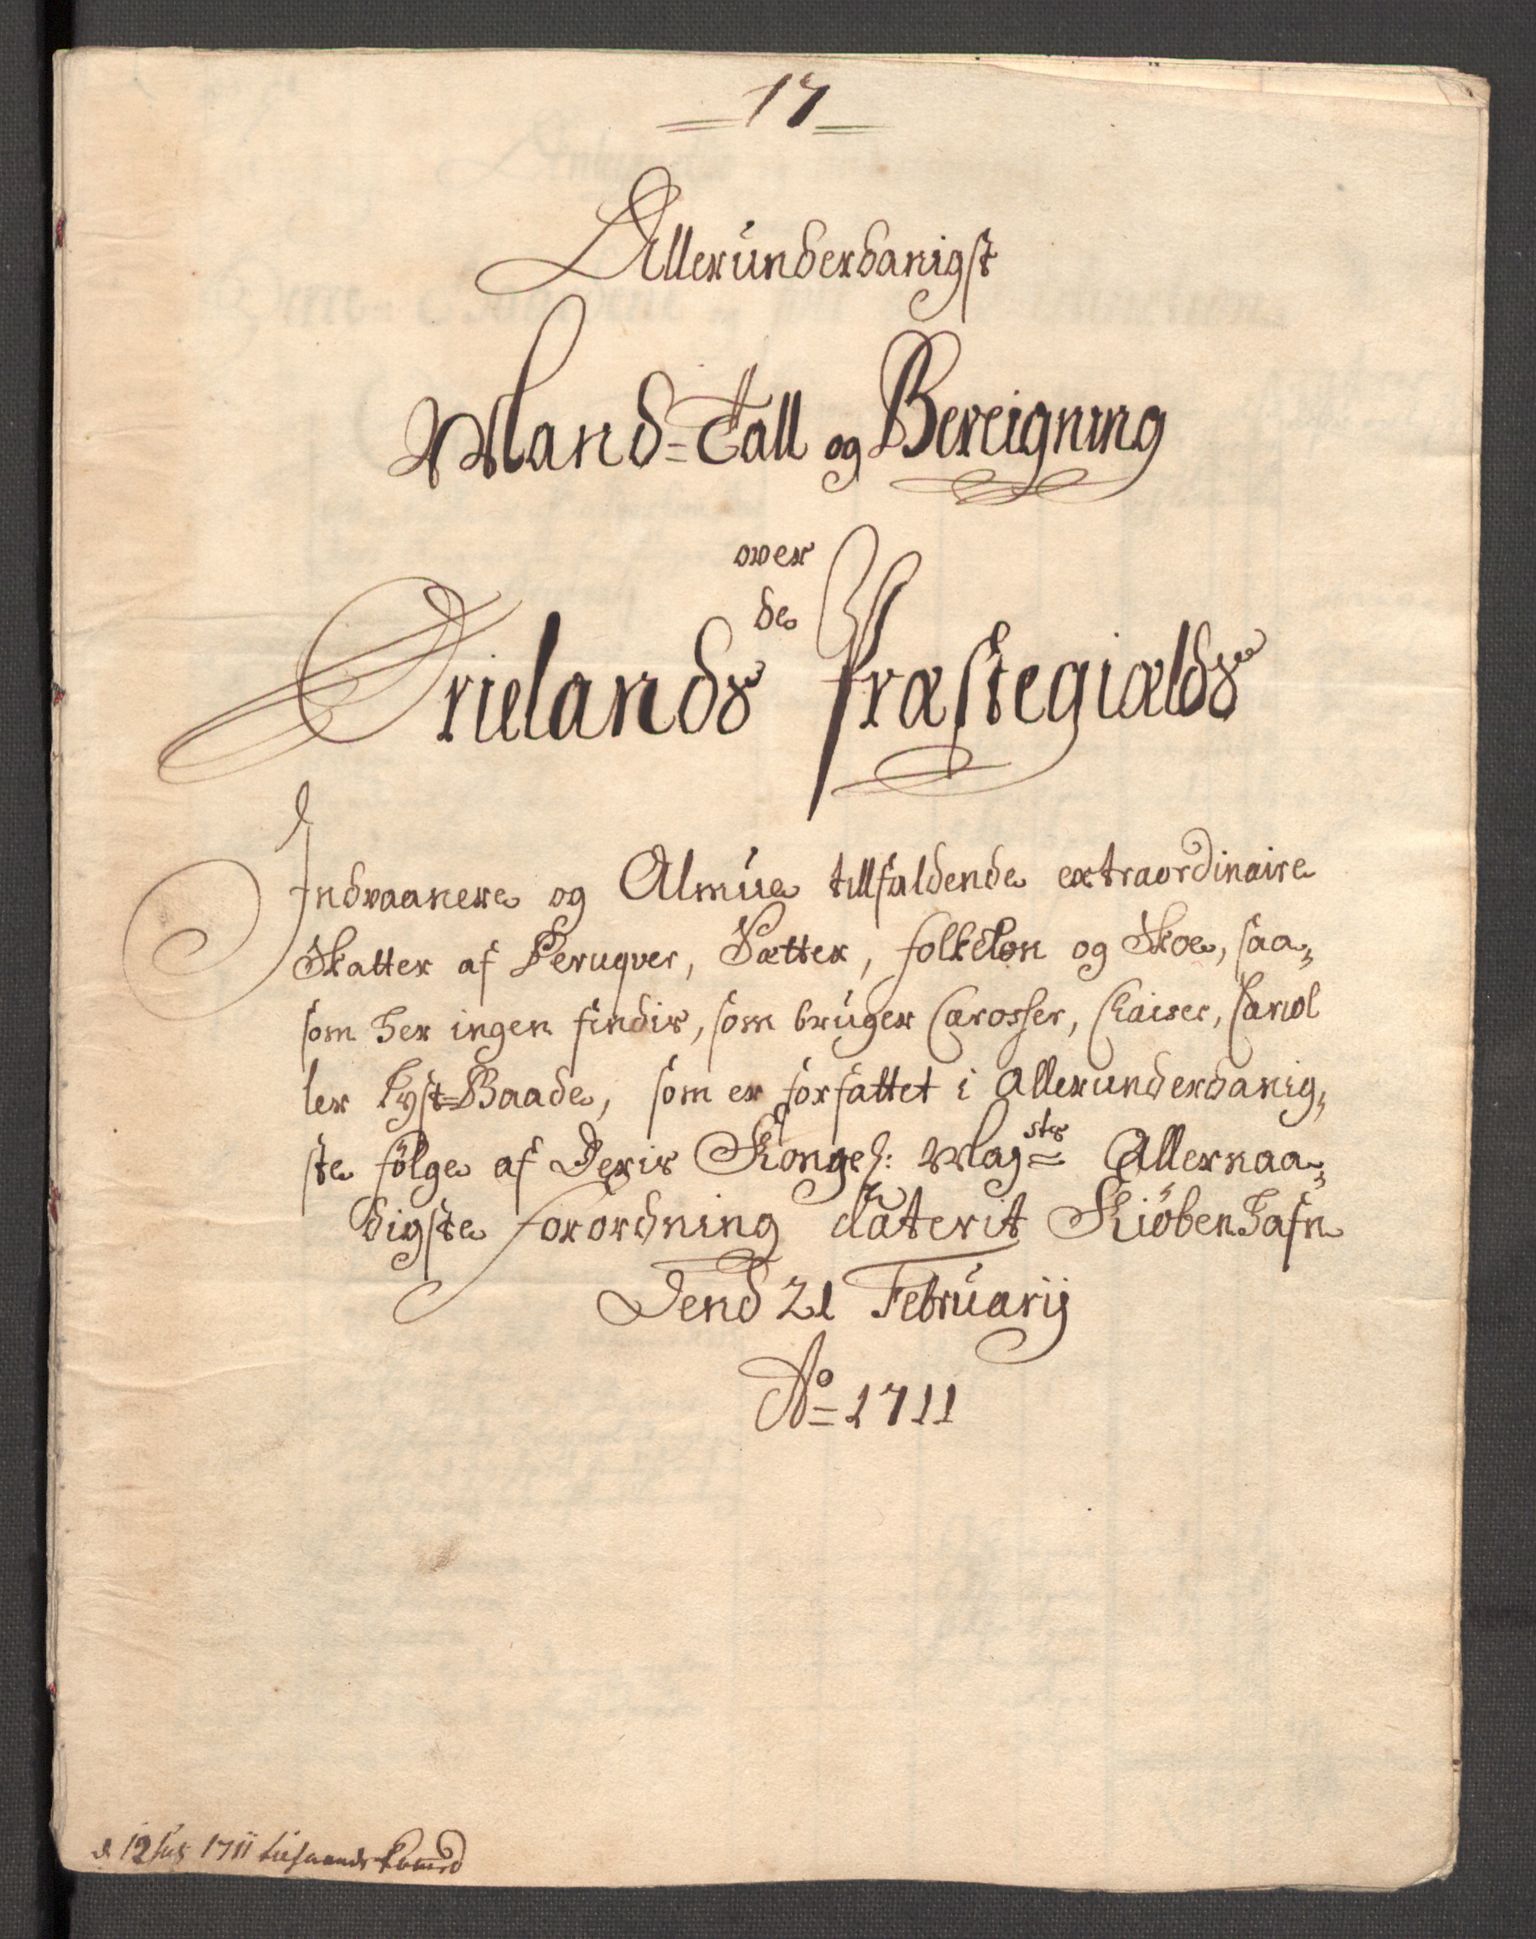 17
Allerunderdanigst
Mand=Tall og Bereigning
over
de
Ørielands Præstegialds
Indvaanere og Almúe tillfaldende extraordinaire
Skatter af Peruqver, Sætter, folkeløn og Skoe, saa,
som her ingen findis, som brúger Carosser, Chaiser, Cariol
ler Lyst=Baade, som er forfattet i allerunderdanig,
ste følge af Deris Kongel: Maj=sts Allernaa,
digste forordning dáterit Kiøbenhafn
Dend 21 Febrúarij
Ao= 1711
d 12 1711